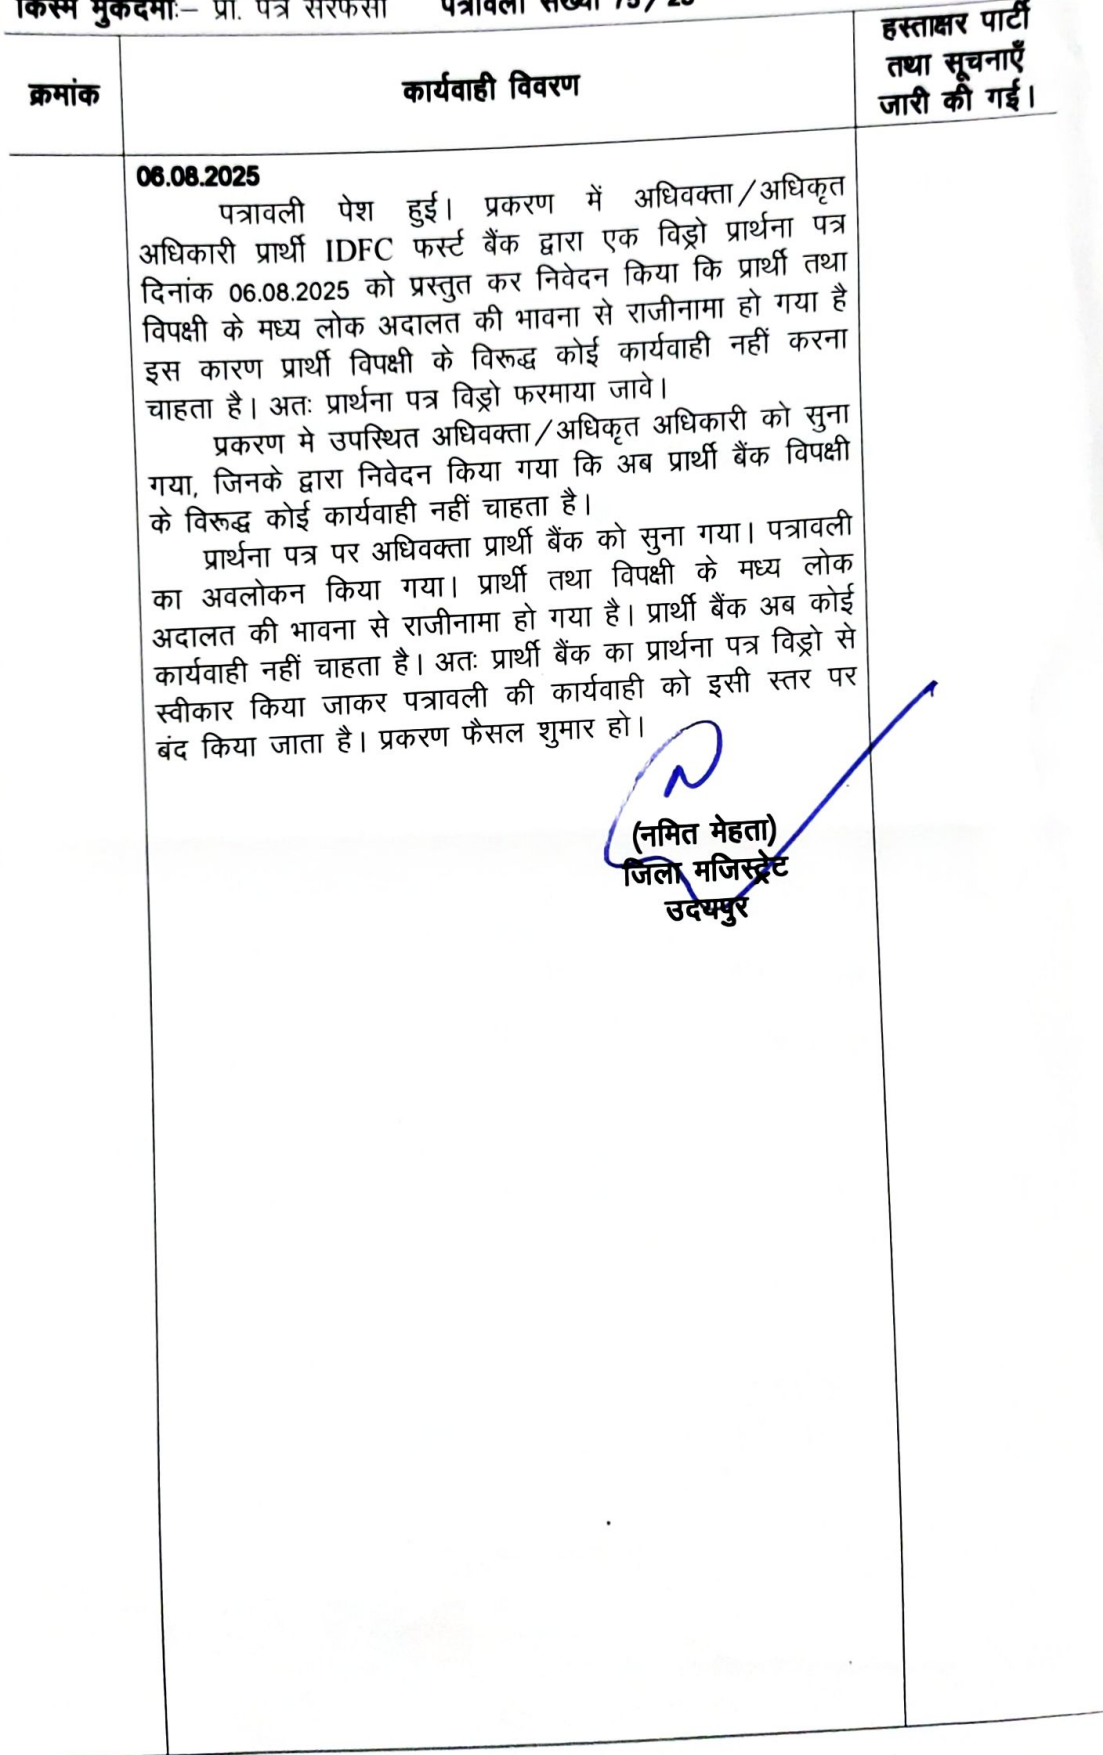 किस्म मुकदमाः– प्रा. पत्र सरफेसी पत्रावली संख्या
क्रमांक
कार्यवाही विवरण
हस्ताक्षर पार्टी
तथा सूचनाएँ
जारी की गई।
06.08.2025
पत्रावली पेश हुई। प्रकरण में अधिवक्ता/अधिकृत
अधिकारी प्रार्थी IDFC फर्स्ट बैंक द्वारा एक विड्रो प्रार्थना पत्र
दिनांक 06.08.2025 को प्रस्तुत कर निवेदन किया कि प्रार्थी तथा
विपक्षी के मध्य लोक अदालत की भावना से राजीनामा हो गया है
इस कारण प्रार्थी विपक्षी के विरूद्ध कोई कार्यवाही नहीं करना
चाहता है। अतः प्रार्थना पत्र विड्रो फरमाया जावे।
प्रकरण मे उपस्थित अधिवक्ता/अधिकृत अधिकारी को सुना
गया, जिनके द्वारा निवेदन किया गया कि अब प्रार्थी बैंक विपक्षी
के विरूद्ध कोई कार्यवाही नहीं चाहता है।
प्रार्थना पत्र पर अधिवक्ता प्रार्थी बैंक को सुना गया। पत्रावली
का अवलोकन किया गया। प्रार्थी तथा विपक्षी के मध्य लोक
अदालत की भावना से राजीनामा हो गया है। प्रार्थी बैंक अब कोई
कार्यवाही नहीं चाहता है। अतः प्रार्थी बैंक का प्रार्थना पत्र विड्रो से
स्वीकार किया जाकर पत्रावली की कार्यवाही को इसी स्तर पर
बंद किया जाता है। प्रकरण फैसल शुमार हो।
(नमित मेहता)
जिला मजिस्ट्रेट
उदयपुर